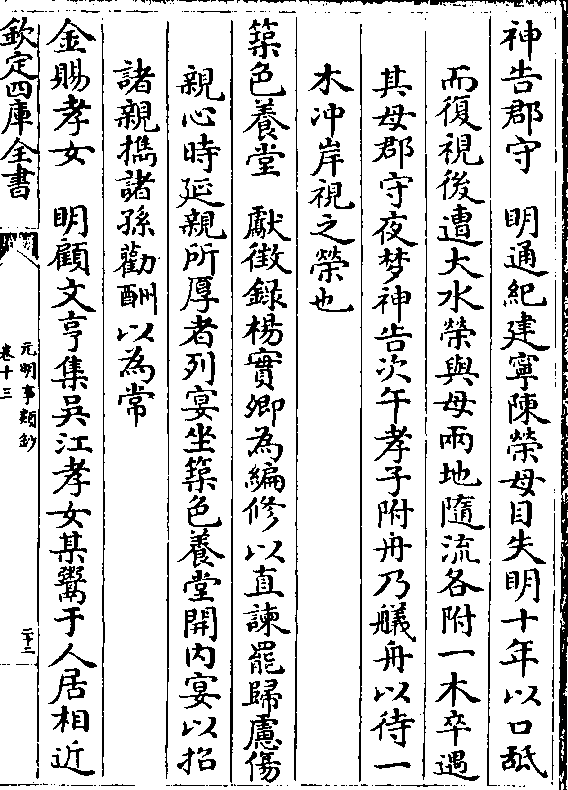 神告郡守　明通紀建寧陳榮母目失明十年以口舐
而復視後遭大水榮與母兩地隨流各附一木卒遇
其母郡守夜梦神告次午孝子附舟乃艤舟以待一
木冲岸視之榮也
築色養堂　獻徴録楊實卿為編修以直諫罷歸慮傷
親心時延親所厚者列宴坐築色養堂開内宴以招
諸親擕諸孫勸酬以為常
金賜孝女　明顧文亨集吳江孝女某鬻于人居相近
欽定四庫全書
元明事類鈔
卷十三
二十二